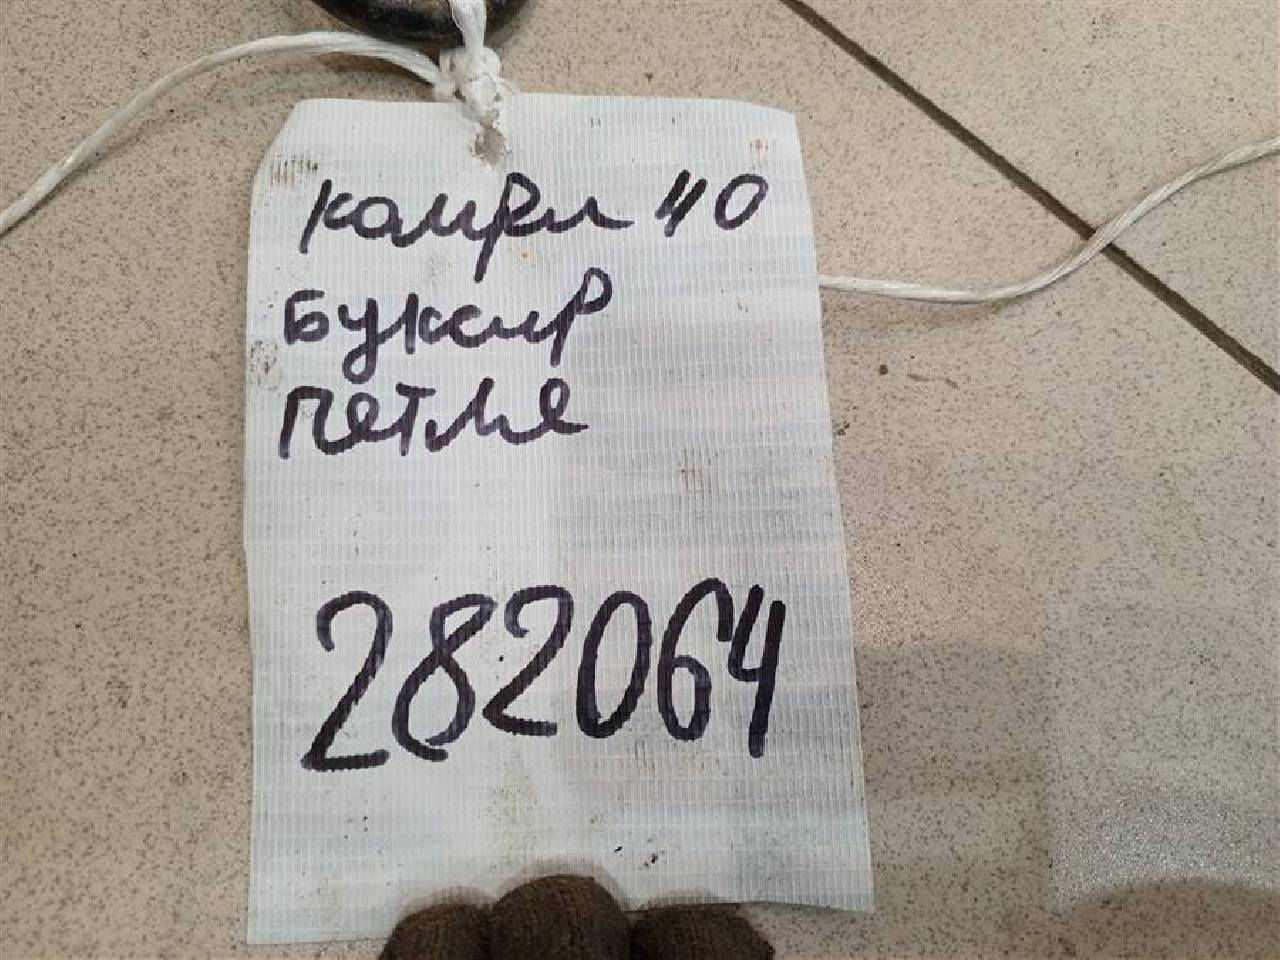 Камри 40
Буксир
петля
282064